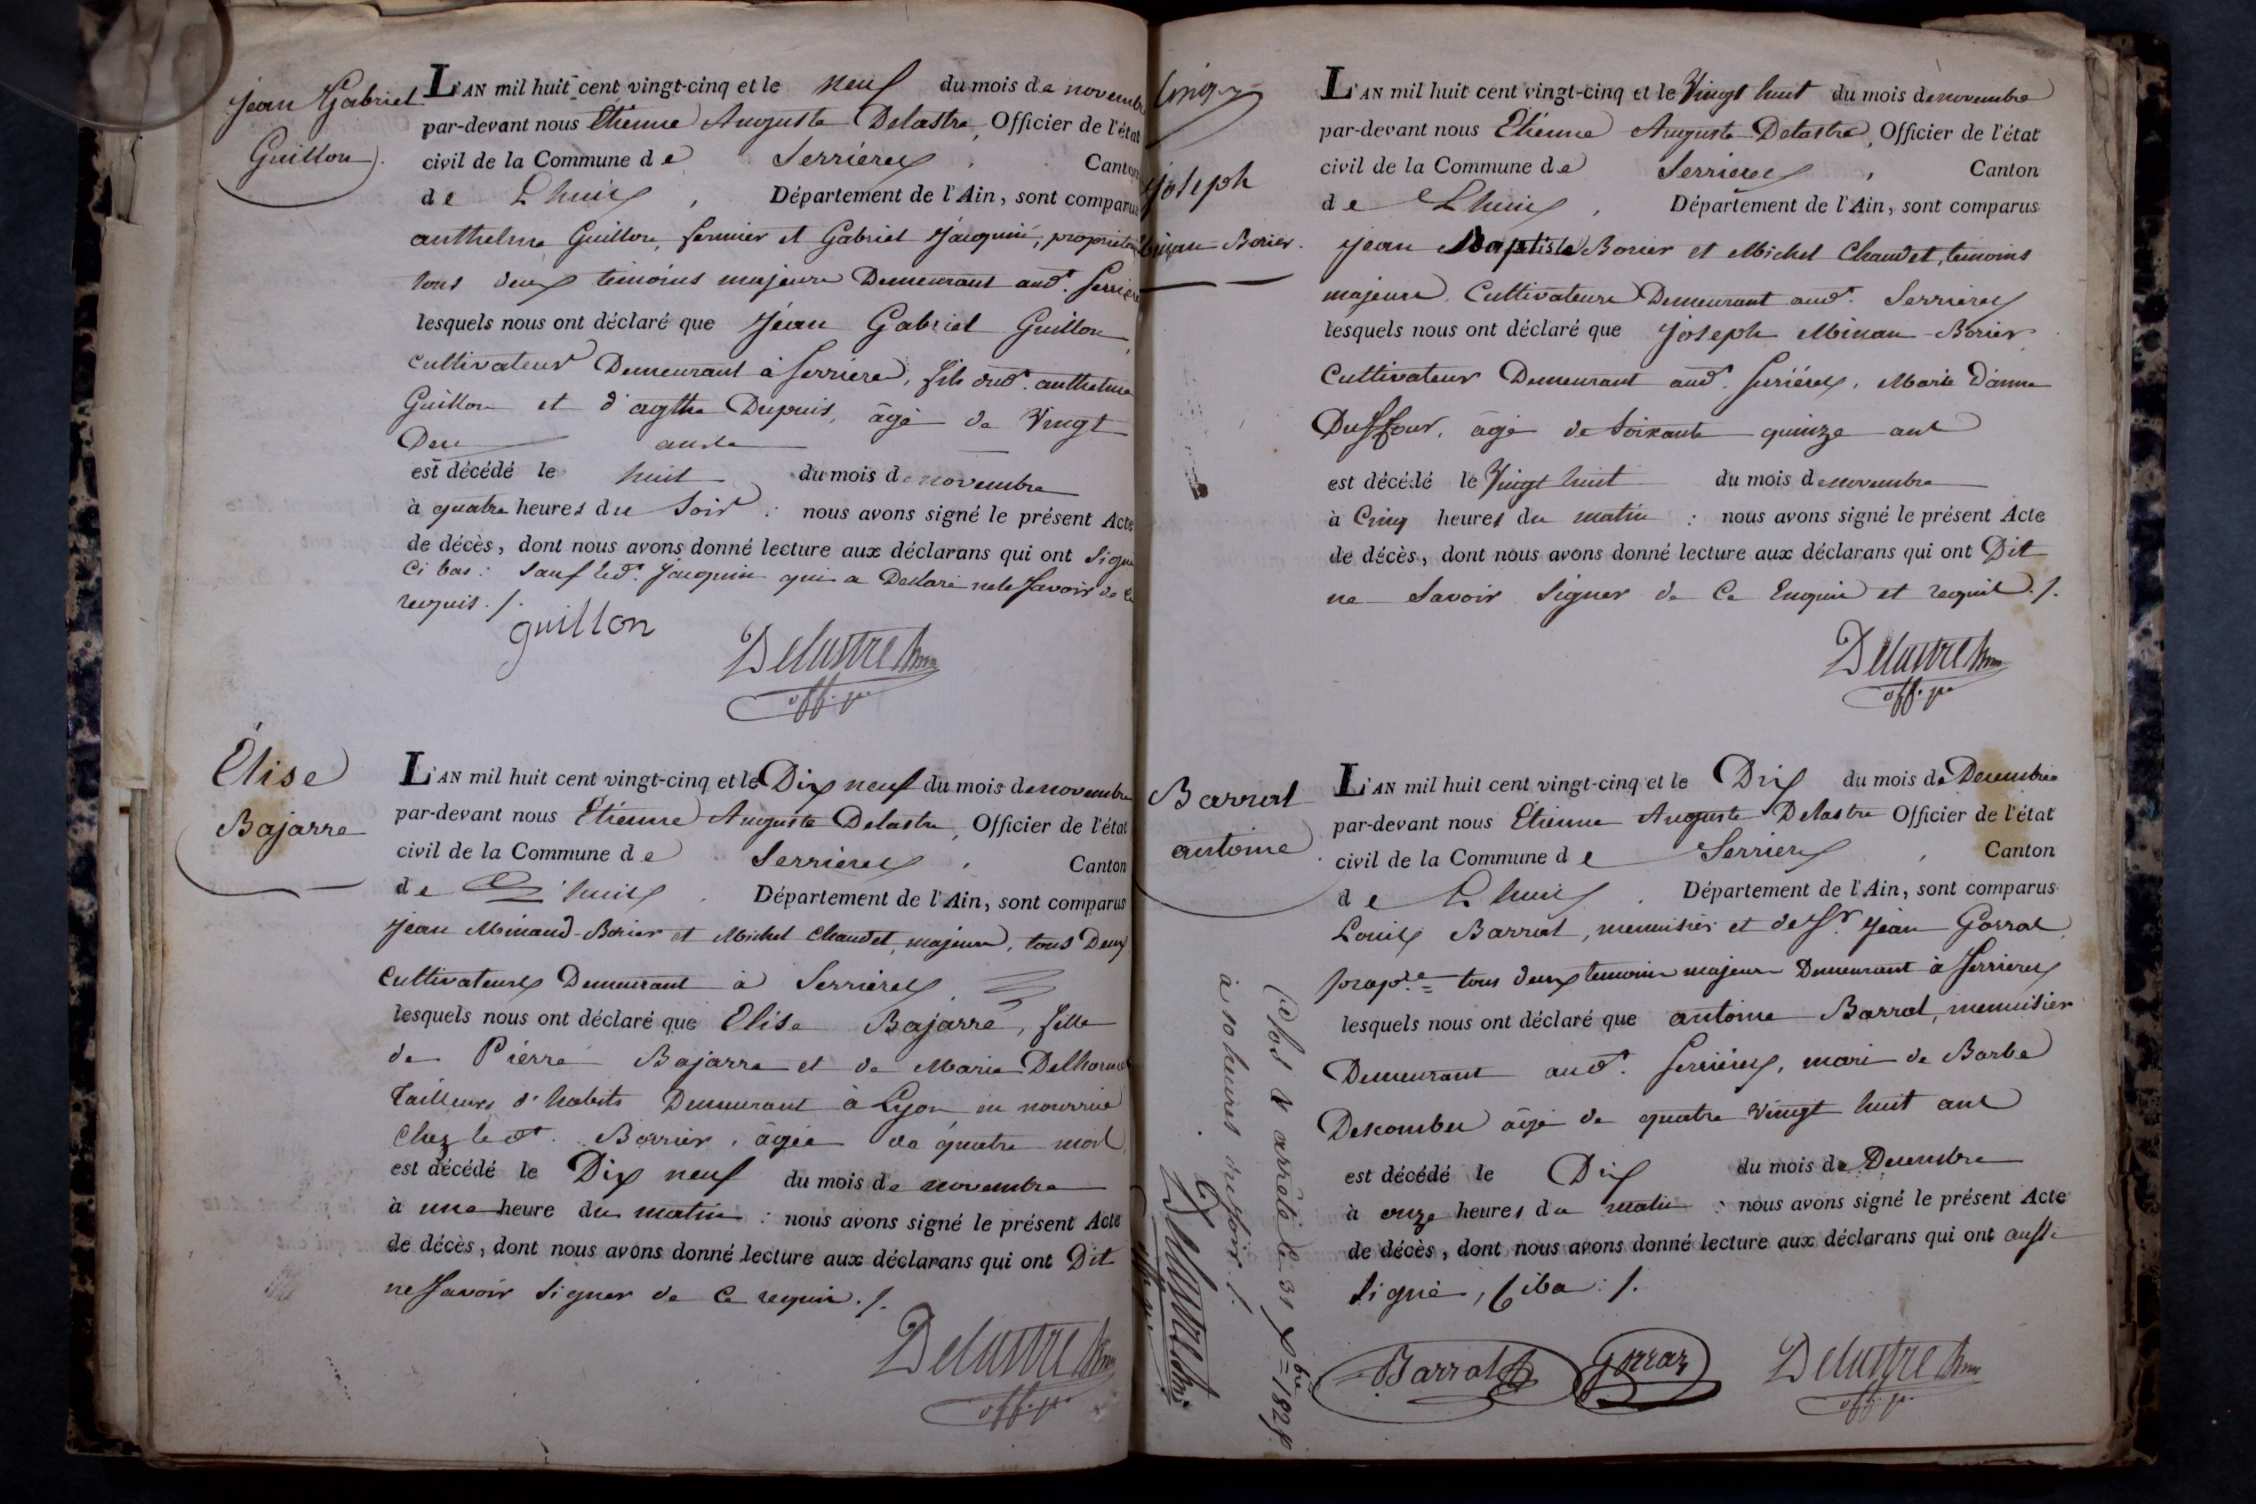 Jean Gabriel
Guillon
L'AN mil huit cent vingt-cinq et le neuf du mois de novembre
par-devant nous Etienne Auguste Delastre, Officier de l'état
civil de la Commune de Serrieres, Canton
de Lhuis, Département de l'Ain, sont comparus
anthelme Guillon, fermier et Gabriel Jacquin, proprietaire
tous deux témoins majeurs Demeurant aud.t Serriere
lesquels nous ont déclaré que Jean Gabriel Guillon,
cultivateur Demeurant à Serriere, fils dud.t anthelme
Guillon et d'agthe Dupuis, âgé de Vingt
Deu ans
est décédé le huit du mois de novembre
à quatre heures du Soir : nous avons signé le présent Acte
de décès, dont nous avons donné lecture aux déclarans qui ont Signé
Ci bas : sauf led.t Jacquin qui a Déclaré ne le savoir de ce
requis ./.
guillon
Delastre
off. p.
Élise
Bajarre
L'AN mil huit cent vingt-cinq et le Dix neuf du mois de novembre
par-devant nous Etienne Auguste Delastre, Officier de l'état
civil de la Commune de Serrieres, Canton
de Lhuis, Département de l'Ain, sont comparus
Jean Minaud-Borier et Michel Chaudet, majeurs, tous Deux
Cultivateurs Demeurant à Serrieres
lesquels nous ont déclaré que Elise Bajarre, fille
de Pierre Bajarre et de Marie Delhorme
Tailleurs d'habits Demeurant à Lyon en nourrice
Chez led.t Borrier, âgée de quatre mois
est décédé le Dix neuf du mois de novembre
à une heure du matin : nous avons signé le présent Acte
de décès, dont nous avons donné lecture aux déclarans qui ont Dit
ne savoir signer de ce requis ./.
Delastre
off. p.
Joseph
Minau Borier.
L'AN mil huit cent vingt-cinq et le Vingt huit du mois de novembre
par-devant nous Etienne Auguste Delastre, Officier de l'état
civil de la Commune de Serrieres, Canton
de Lhuis, Département de l'Ain, sont comparus
Jean Baptiste Borier et Michel Chaudet, temoins
majeurs, Cultivateurs Demeurant aud.t Serrieres
lesquels nous ont déclaré que Joseph Minau-Borier
Cultivateur Demeurant aud.t Serriéres, Marie D'anne
Duffour, âgé de Soixante quinze ans
est décédé le Vingt huit du mois de novembre
à Cinq heures du matin : nous avons signé le présent Acte
de décès, dont nous avons donné lecture aux déclarans qui ont Dit
ne Savoir Signer de Ce Enquis et requis ./.
Delastre
off. p.
Barrat
antoine
L'AN mil huit cent vingt-cinq et le Dix du mois de Decembre
par-devant nous Etienne Auguste Delastre Officier de l'état
civil de la Commune de Serrieres, Canton
de Lhuis. Département de l'Ain, sont comparus
Louis Barrat, menuisier et de S.r Jean Gorrat
prop.re tous deux temoins majeurs Demeurant à Serrieres
lesquels nous ont déclaré que antoine Barrat, menuisier
Demeurant aud.t Serriéres, mari de Barbe
Descombes âgé de quatre vingt huit ans
est décédé le Dix du mois de Decembre
à onze heures du matin : nous avons signé le présent Acte
de décès, dont nous avons donné lecture aux déclarans qui ont aussi
Signé, Ciba : /.
Barrat
gorraz
Delastre
off. p.
Clos & arrêté le 31 X.bre 1825
à 10 heures du soir ./.
Delastre